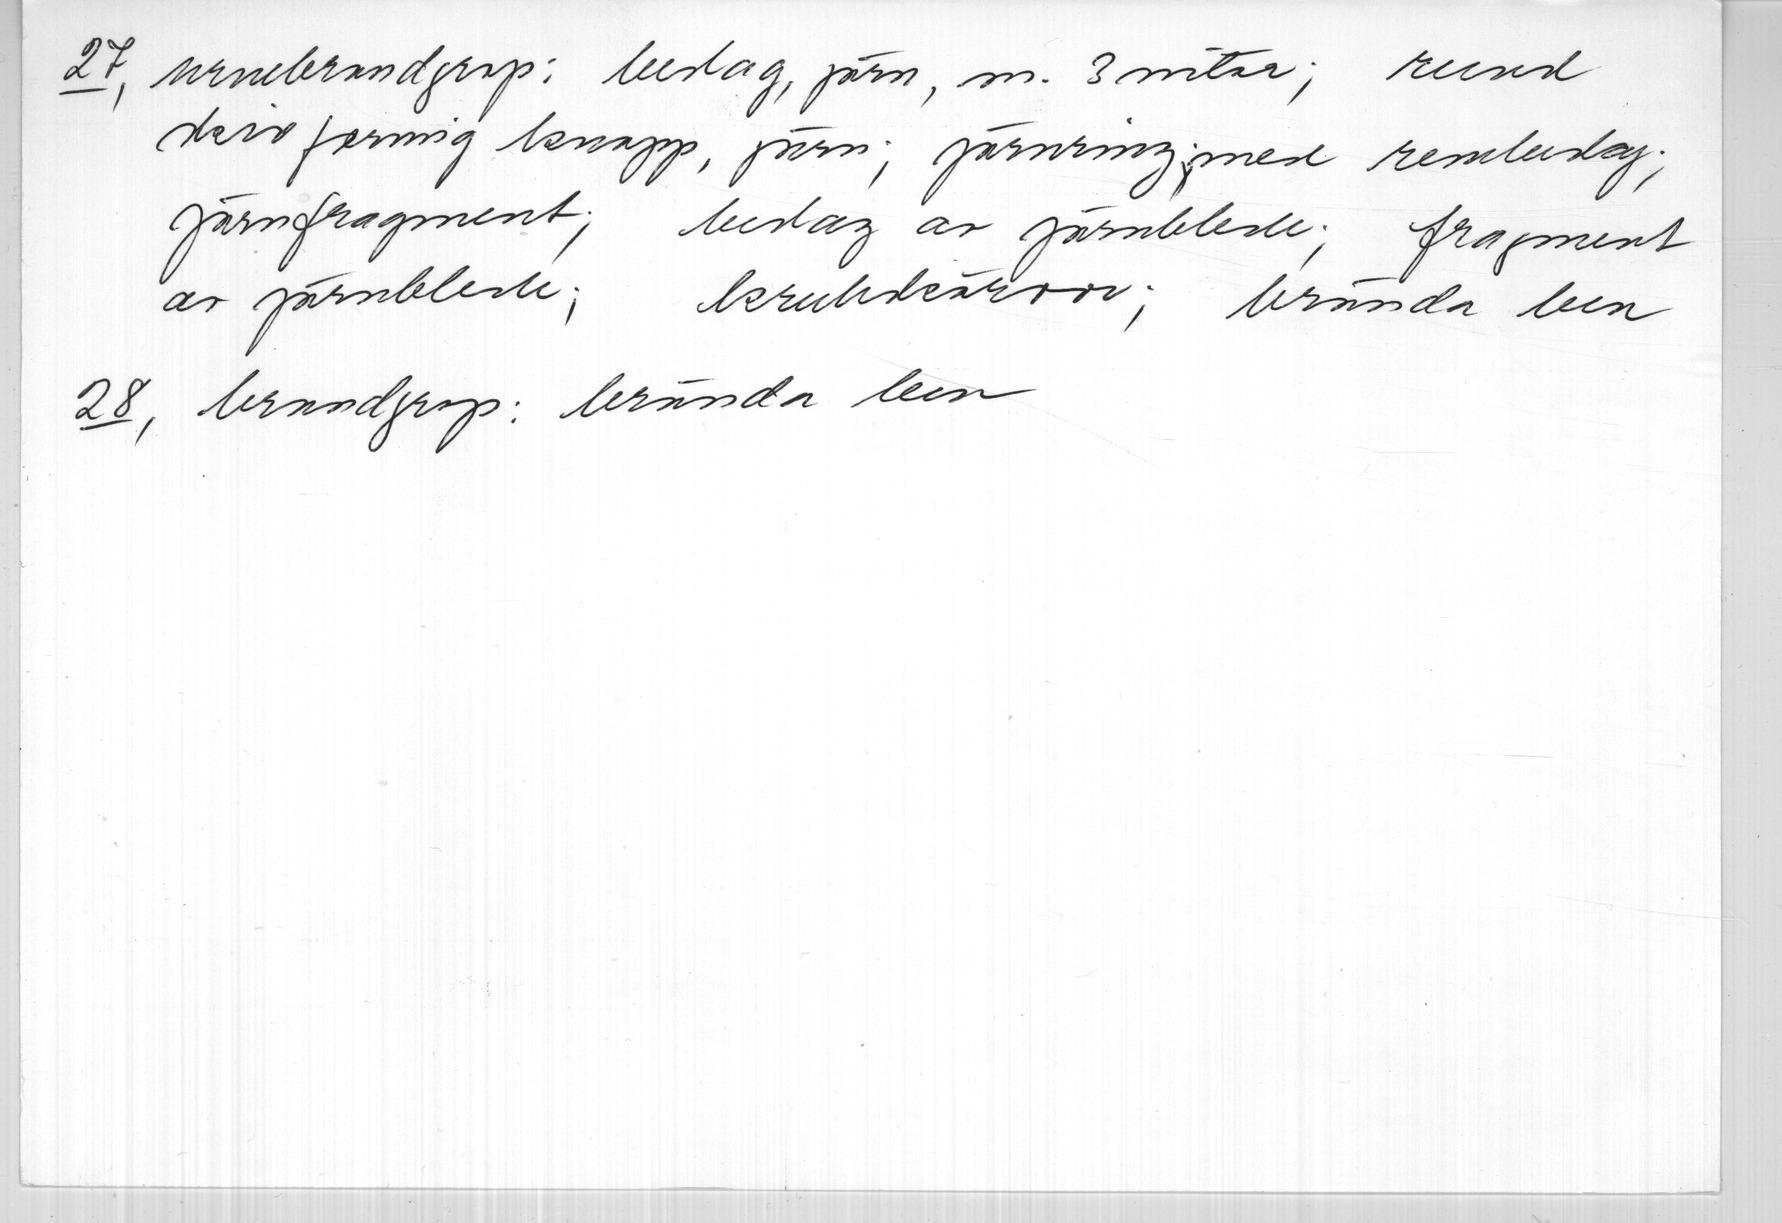 27, urnebrandgrop: beslag, järn, m. 3 nitar; rund
skivformig knapp, järn; järnring; med rembeslag;
järnfragment; beslag av järnbleck; fragment
av järnbleck; krukskärvor; brända ben
28, brandgrop: brända ben